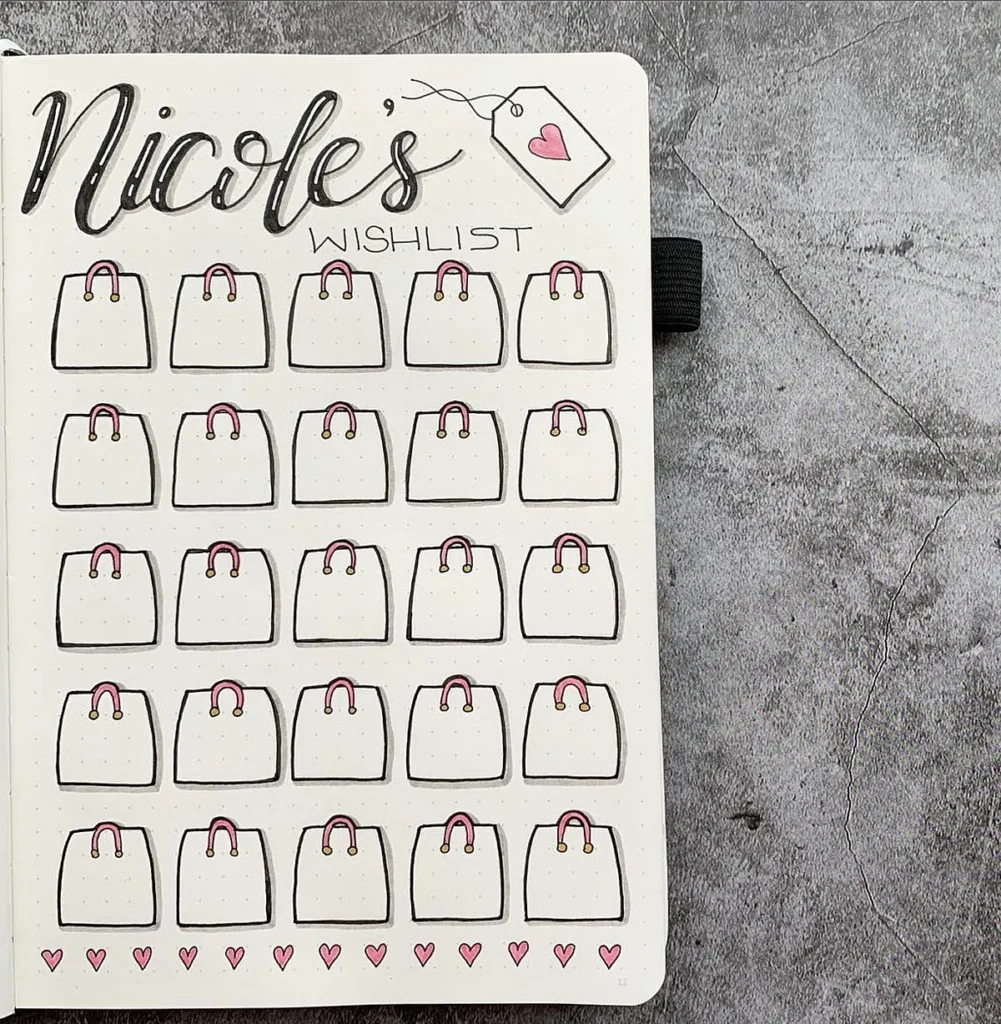 Nicole's
WISHLIST
12